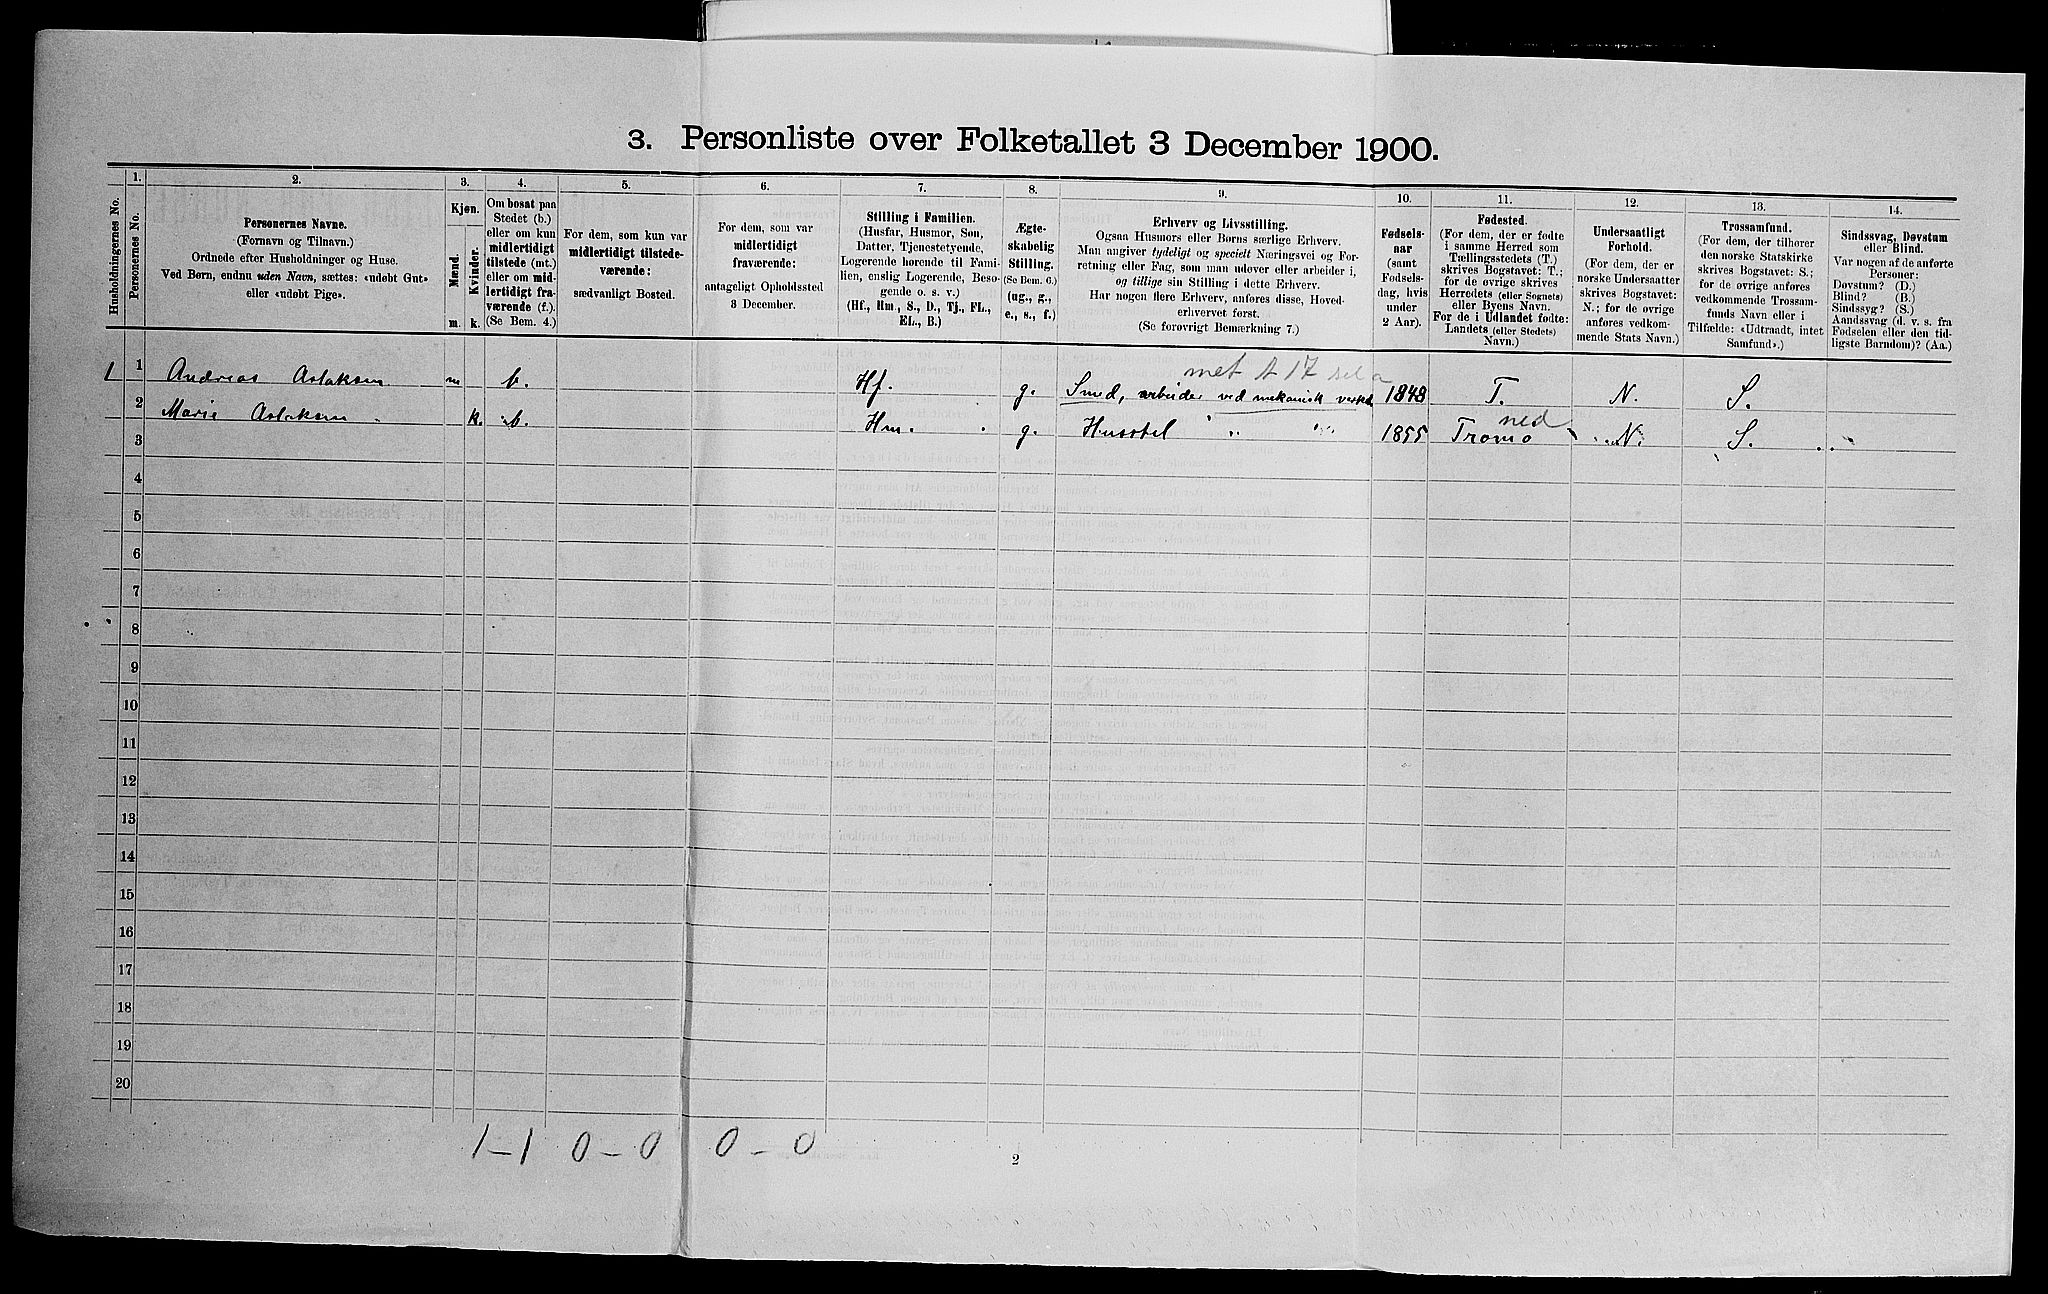 3. Personliste over Folketallet 3 December 1900.
1. 2. 3. 4. 5. 6. 7. 8. 9. 10. 11. 12. 13. 14.
Husholdningernes No.
Personernes No.
Personernes Navne.
(Fornavn og Tilnavn.)
Ordnede efter Husholdninger og Huse.
Ved Børn, endnu uden Navn, sættes: «udøbt Gut»
eller «udøbt Pige».
Kjøn.
Mænd.
Kvinder.
m. k.
Om bosat paa
Stedet (b.)
eller om kun
midlertidigt
tilstede (mt.)
eller om mid-
lertidigt fra-
værende (f.).
(Se Bem. 4.)
For dem, som kun var
midlertidigt tilstede-
værende:
sædvanligt Bosted.
For dem, som var
midlertidigt
fraværende:
antageligt Opholdssted
3 December.
Stilling i Familien.
(Husfar, Husmor, Søn,
Datter, Tjenestetyende,
Logerende hørende til Fami-
lien, enslig Logerende, Besø-
gende o. s. v.)
(Hf., Hm., S., D., Tj., FL.,
EL., B.)
Ægte-
skabelig
Stilling.
(Se Bem. 6.)
(ug., g.,
e., s., f.)
Erhverv og Livsstilling.
Ogsaa Husmors eller Børns særlige Erhverv.
Man angiver tydeligt og specielt Næringsvei og For-
retning eller Fag, som man udøver eller arbeider i,
og tillige sin Stilling i dette Erhverv.
Har nogen flere Erhverv, anføres disse, Hoved-
erhvervet først.
(Se forøvrigt Bemærkning 7.)
Fødsels-
aar
(samt
Fødsels-
dag, hvis
under
2 Aar).
Fødested.
(For dem, der er fødte
i samme Herred som
Tællingsstedets (T.)
skrives Bogstavet: T.;
for de øvrige skrives
Herredets (eller Sognets)
eller Byens Navn.
For de i Udlandet fødte:
Landets (eller Stedets)
Navn.)
Undersaatligt
Forhold.
(For dem, der er
norske Undersaatter
skrives Bogstavet:
N.; for de øvrige
anføres vedkom-
mende Stats Navn.)
Trossamfund.
(For dem, der tilhører
den norske Statskirke
skrives Bogstavet: S.;
for de øvrige anføres
vedkommende Trossam-
funds Navn eller i
Tilfælde: «Udtraadt, intet
Samfund».)
Sindssvag, Døvstum
eller Blind.
Var nogen af de anførte
Personer:
Døvstum? (D.)
Blind? (B.)
Sindssyg? (S.)
Aandssvag (d. v. s. fra
Fødselen eller den tid-
ligste Barndom)? (Aa.)
met A 17
1 1 Andreas Aslaksen m b. Hf. g. Smed, arbeider ved mekanisk 1848 T. N. S.
ned
2 Marie Aslaksen k. b. Hm. g. Husstel " " 1855 Tromø N. S.
3
4
5
6
7
8
9
10
11
12
13
14
15
16
17
18
19
20
1-1 0-0 0-0
2